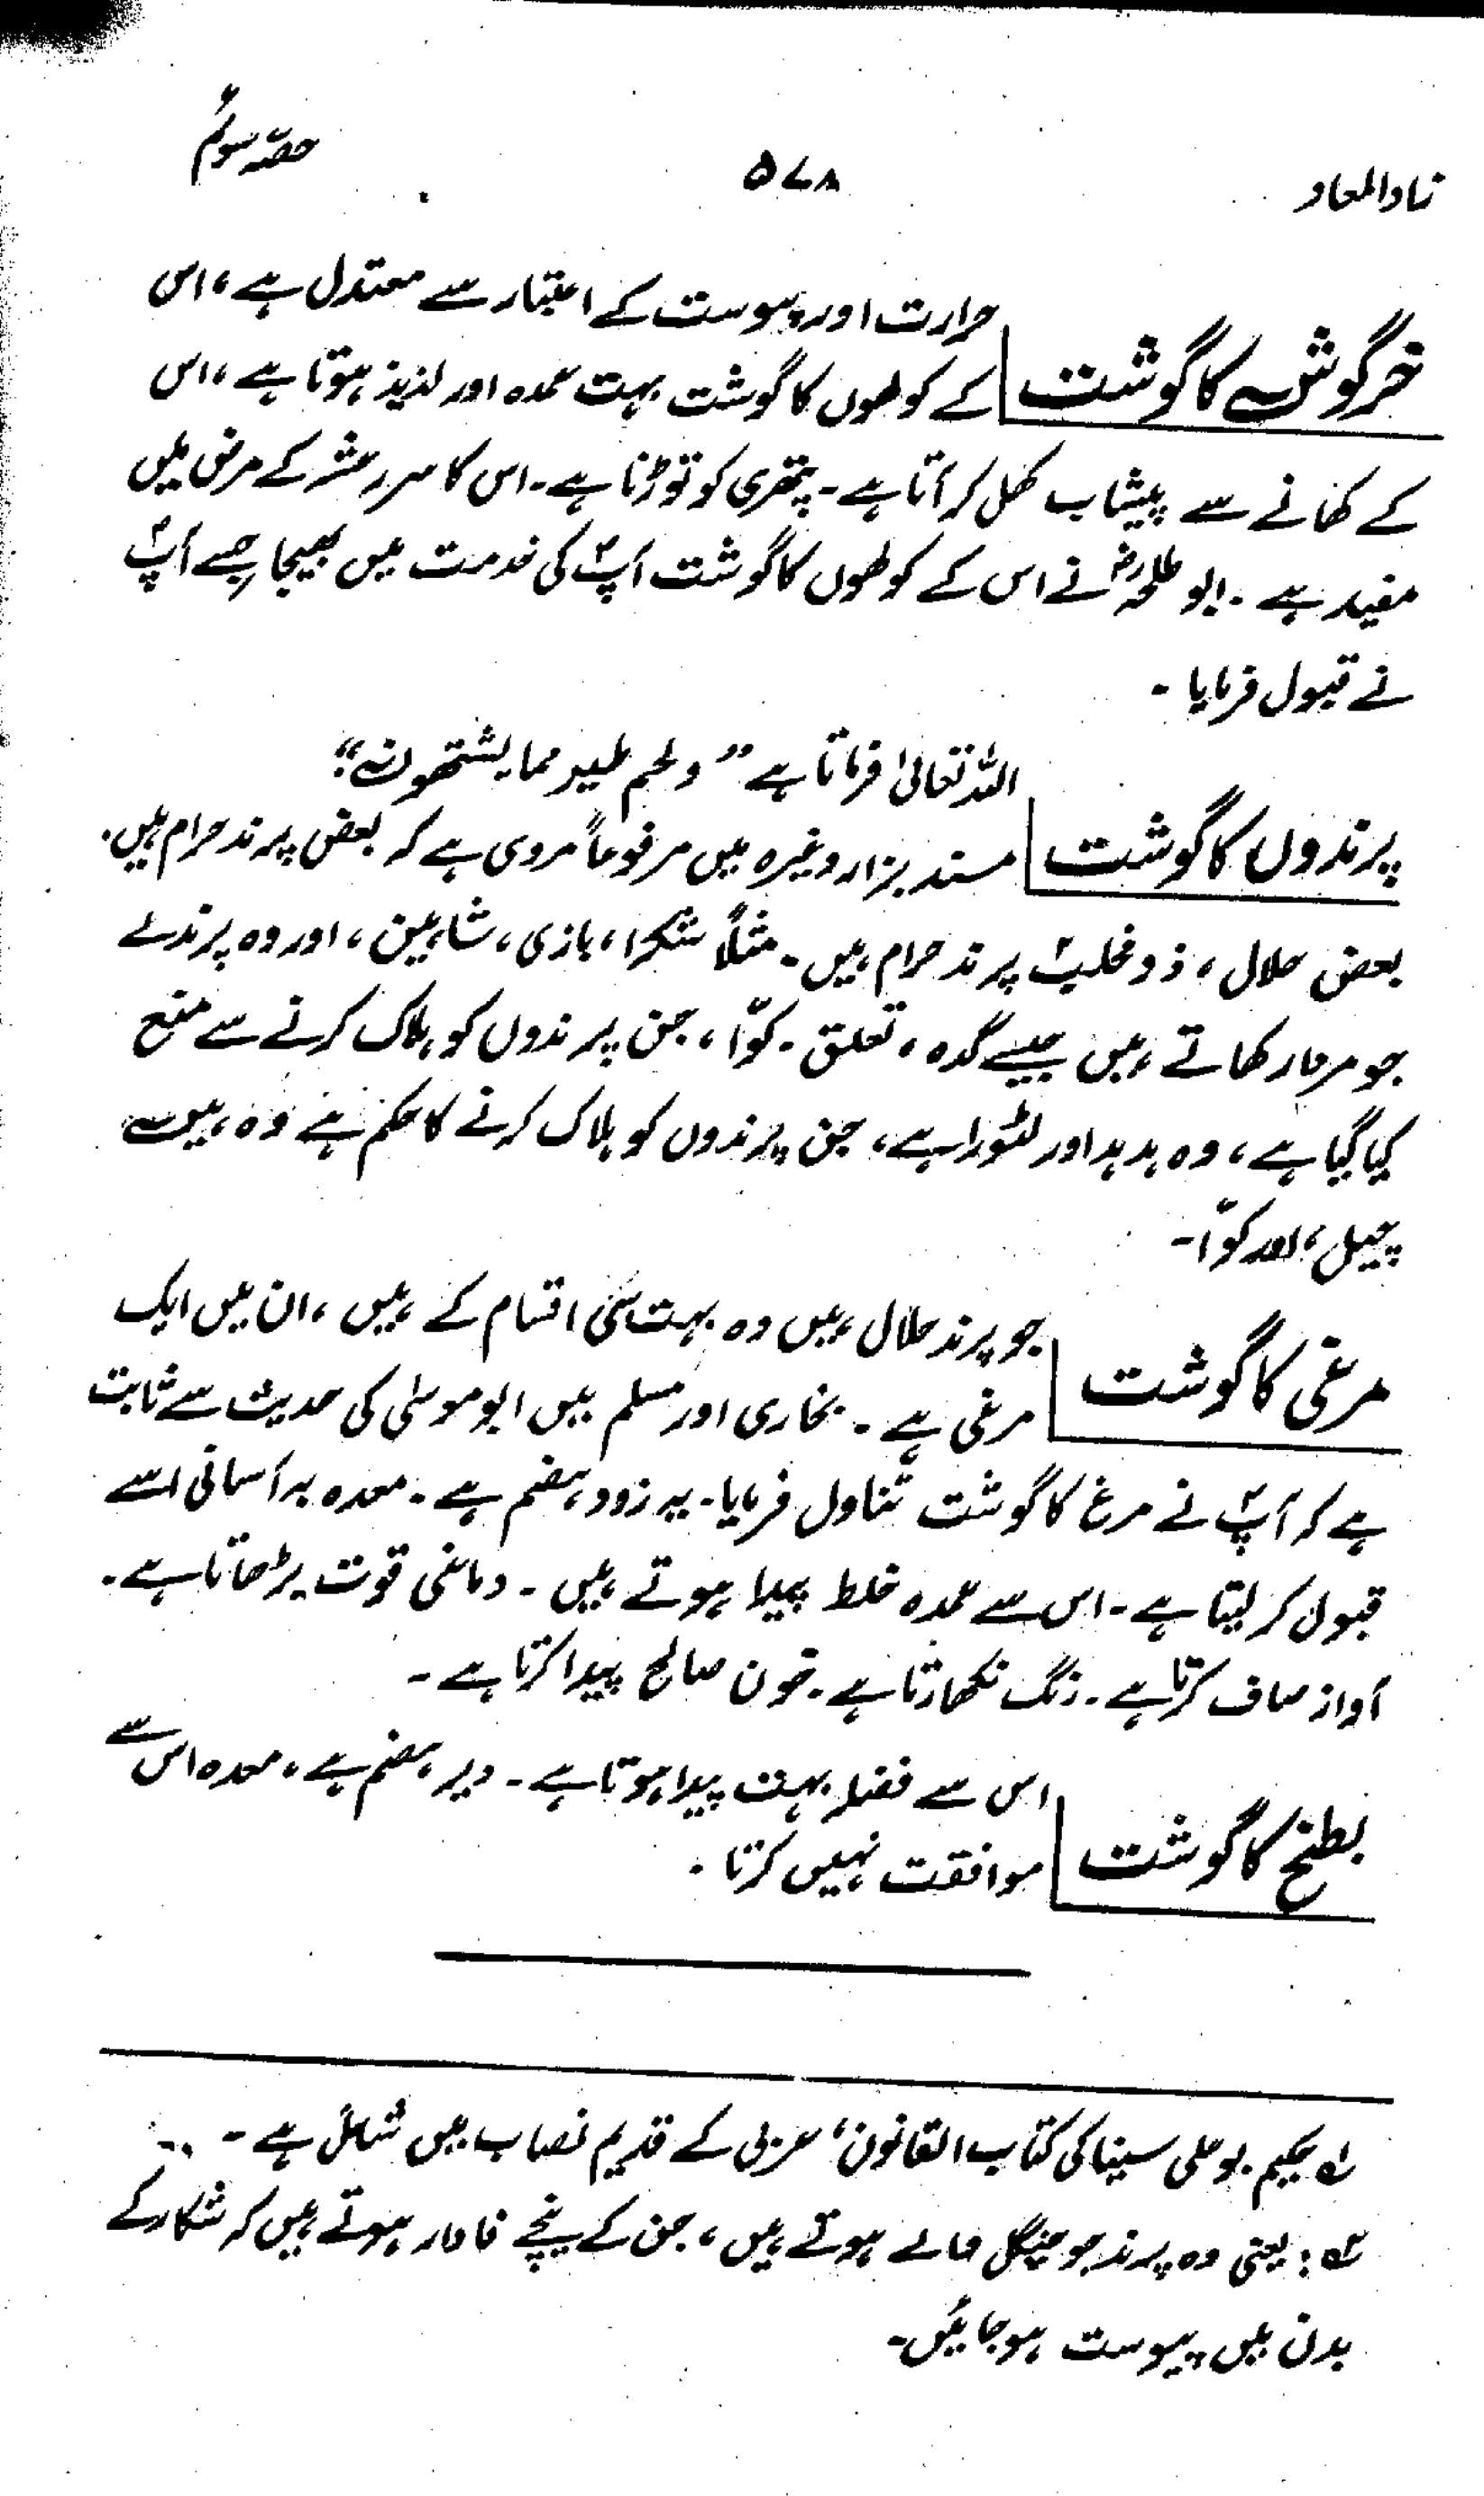 زادالمعاد
۵۷۸
حصّہ سوئم
خرگوش کا گوشت
حرارت اور یبوست کے اعتبار سے معتدل ہے، اس
کے کولھوں کا گوشت بہت عمدہ اور لذیذ ہوتا ہے، اس
کے کھانے سے پیشاب کھل کر آتا ہے۔ پتھری کو توڑتا ہے۔ اس کا سر رعشہ کے مرض میں
مفید ہے۔ ابو طلحہؓ نے اس کے کولھوں کا گوشت آپؐ کی خدمت میں بھیجا جسے آپؐ
نے قبول فرمایا۔
پرندوں کا گوشت
اللہ تعالیٰ فرماتا ہے "ولحم طیر مما یشتھون"
مسند بزار وغیرہ میں مرفوعاً مروی ہے کہ بعض پرند حرام ہیں۔
بعض حلال، ذو مخلب پرند حرام ہیں۔ مثلاً شکرا، بازی، شاہین، اور وہ پرندے
جو مردار کھاتے ہیں جیسے گدھ، تعلق۔ کوّا، جن پرندوں کو ہلاک کرنے سے منع
کیا گیا ہے، وہ ہدہد اور لٹورا ہے، جن پرندوں کو ہلاک کرنے کا حکم ہے وہ ہیں
چیل، اور کوّا۔
مرغی کا گوشت
جو پرند حلال ہیں وہ بہت سی اقسام کے ہیں، ان میں ایک
مرغی ہے۔ بخاری اور مسلم میں ابو موسیٰ کی حدیث سے ثابت
ہے کہ آپؐ نے مرغ کا گوشت تناول فرمایا۔ یہ زود ہضم ہے۔ معدہ بہ آسانی اسے
قبول کر لیتا ہے۔ اس سے عمدہ خلط پیدا ہوتے ہیں۔ دماغی قوت بڑھاتا ہے۔
آواز صاف کرتا ہے۔ رنگ نکھارتا ہے۔ خون صالح پیدا کرتا ہے۔
بطخ کا گوشت
اس سے فضلہ بہت پیدا ہوتا ہے۔ دیر ہضم ہے، معدہ اس سے
موافقت نہیں کرتا۔
لہ حکیم بو علی سینا کی کتاب القانون، عربی کے قدیم نصاب میں شامل ہے۔
ٰلہ: یعنی وہ پرند جو چنگل والے ہوتے ہیں، جن کے پنجے خاردار ہوتے ہیں کہ شکار کے
بدن میں پیوست ہو جائیں۔